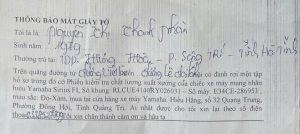 THÔNG BÁO MẤT GIẤY TỜ
Tôi tên là: Nguyễn Thị Thanh Nhàn
Sinh năm: 1979
Thường trú tại: TDP. Hưng - P. Sông Trí - Tỉnh Hà Tĩnh
Trên quãng đường từ có đánh rơi một tập
hồ sơ trong đó có Phiếu kiểm tra chất lượng xuất xưởng của chiếc xe máy mang nhãn
hiệu Yamaha Sirius FI, Số khung: RLCUE4140RY026511 - Số máy: E34CE-286953,
màu sắc: Đỏ-Xám, mua tại cửa hàng xe máy Yamaha Hiếu Hằng, số 32 Quang Trung,
Phường Đồng Hới, Tỉnh Quảng Trị. Ai nhặt được cho tôi xin lại theo số điện
thoại xin chân thành cảm ơn và hậu tạ